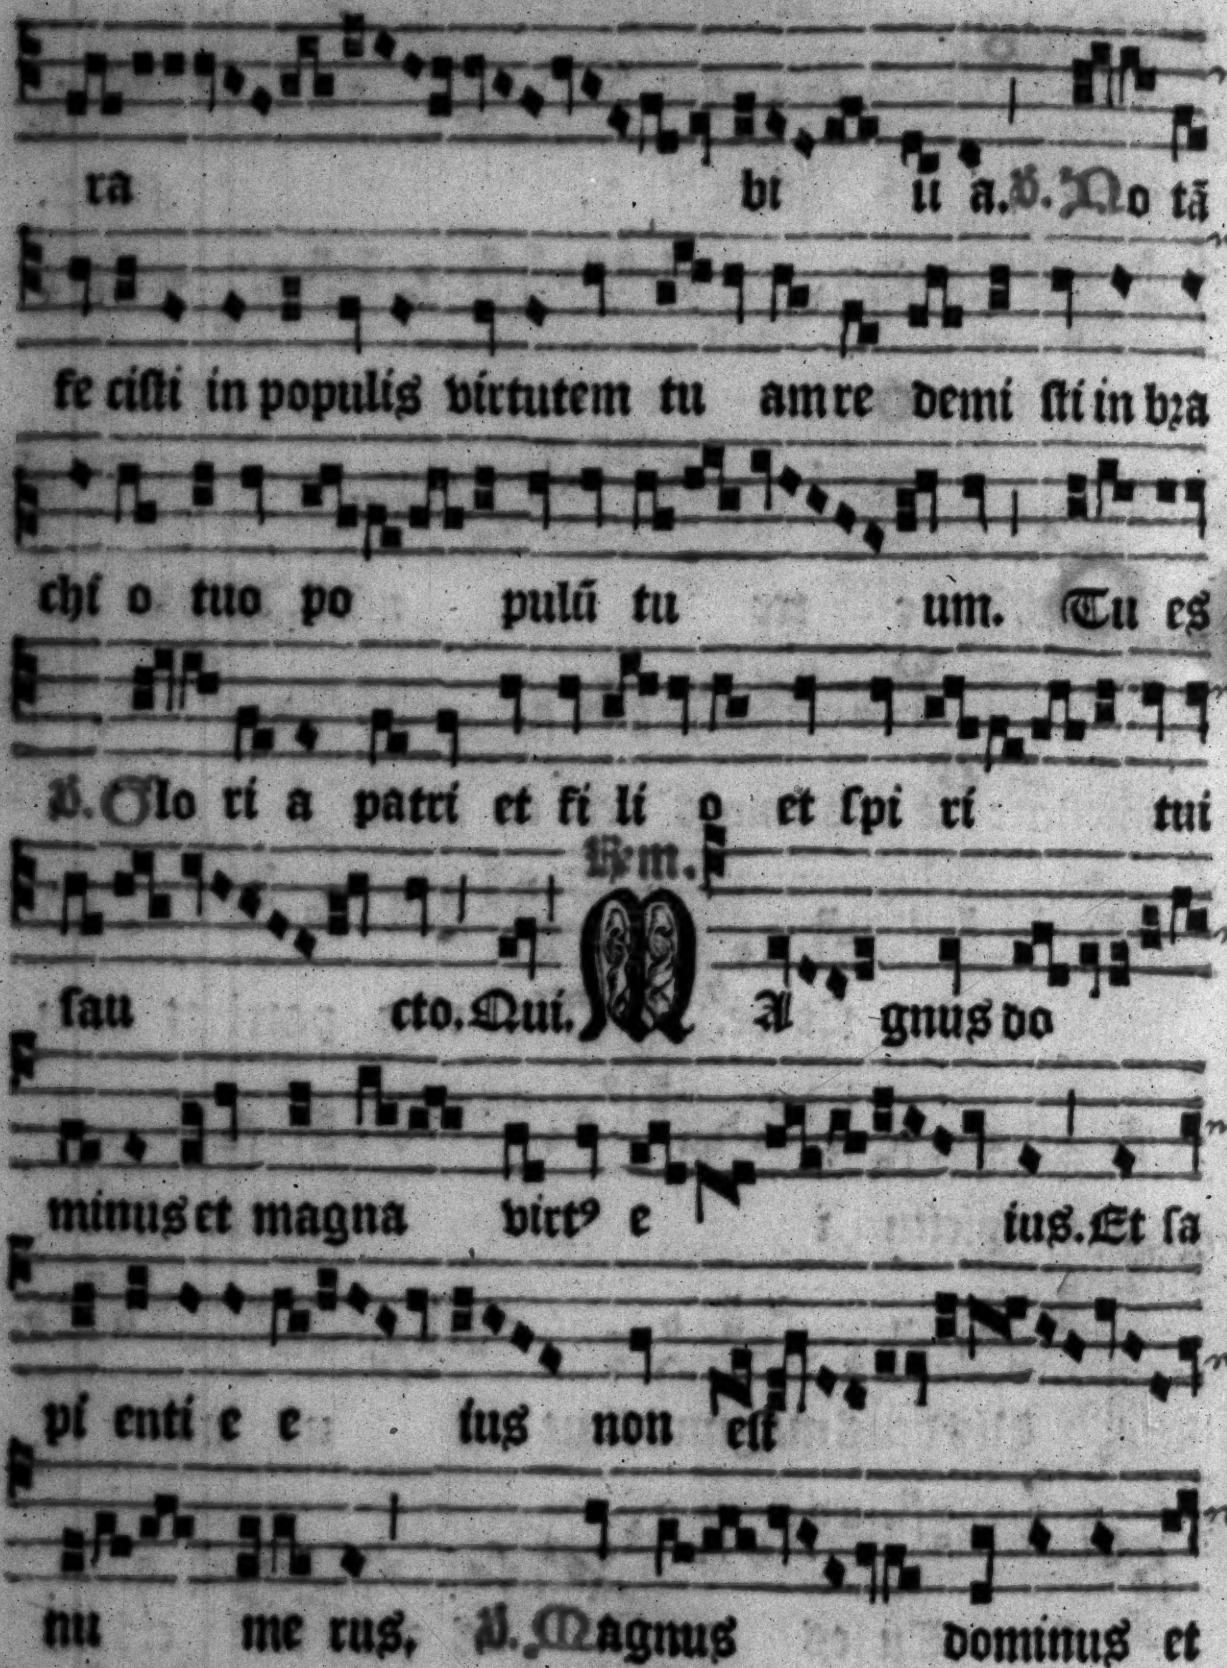 ra bi li a. V. No tã
fe cisti in populis virtutem tu am re demi sti in bra
chi o tuo po pulũ tu um. Tu es
V. Glo ri a patri et fi li o et spi ri tui
san cto. Qui. R. m. M A gnus do
minus et magna virtꝰ e ius. Et sa
pi enti e e ius non est
nu me rus. V. Magnus dominus et